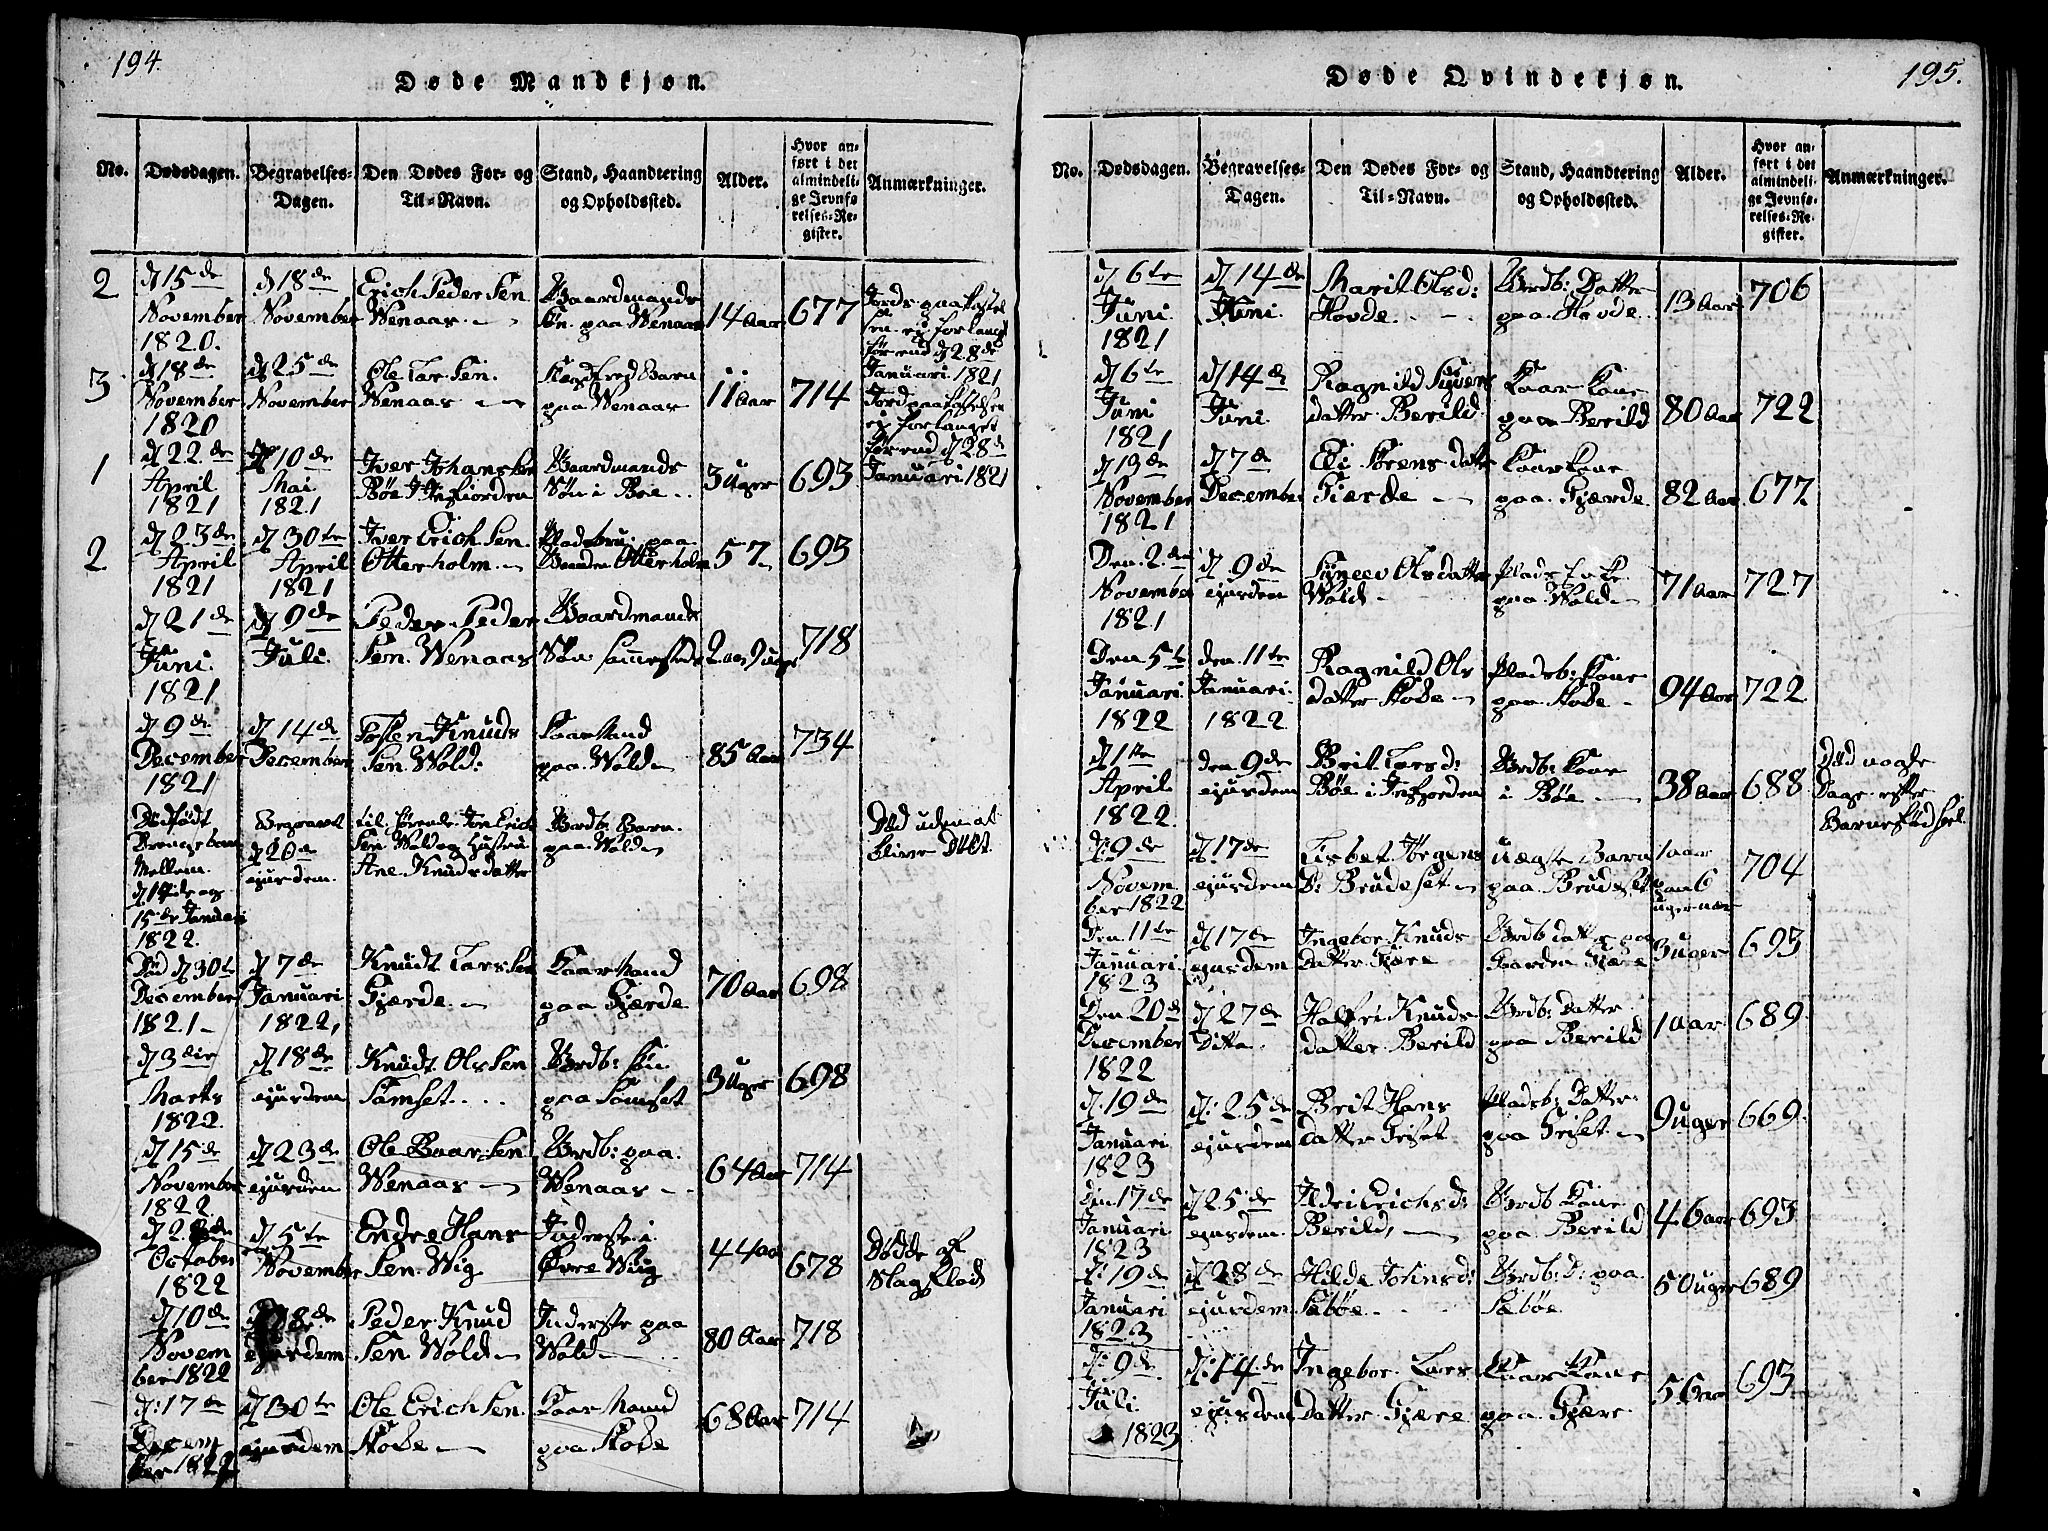 194.
Døde Mandkjøn.
No. Dødsdagen. Begravelses-Dagen. Den Dødes For- og Til-Navn. Stand, Haandtering og Opholdssted. Alder. Hvor anført i det almindelige Jevnførelses-Register. Anmærkninger.
2 d 15de November 1820. d 18de November Erich Peder Sen Wenaas Gaardmands Søn paa Wenaas 14 Aar 677 Jords paa ej forlangt førend d 28de Januari 1821
3 d 18de November 1820 d 25de November Ole Lar Sen. Wenaas Barn paa Wenaas 11 Aar 714 Jord paa ej forlanget førend d 28de Januari 1821
1 d 22de April 1821 d 10de Mai 1821 Iver Johans Sen Bøe i Insfiorden Gaardmands Søn i Bøe 3 Uger 693
2 d 23de April 1821 d 30te April 1821 Iver Erich Sen. Otterholm Pladsbru: paa Otterholm 57 693
d 21de Juni 1821 d 9de Juli Peder Peder Sen. Wenaas Gaardmands Søn sammesteds 2 aar 9 uger 718
d 9de December 1821 d 14de December Tosten Knuds Sen Wold: Kaarmand paa Wold 85 Aar 734
Dødfødt Drengebarn Mellem d 14de og 15de Januari 1822. Begravet d 20de ejusdem. til førende Jon Erich Sen Wold og Hustru Ane Knudsdatter Brdb: Barn. paa Wold Død uden at blive Døbt
Død d 30te December 1821 d 7de Januari 1822, Knudt Lars Sen Gjærde Kaarmand paa Gjærde 70 Aar 698
d 3die Marts 1822. d 18de ejusdem Knudt Ols Sen Sæmset Brdb: Søn paa Sæmset 3 Uger 698
d 15de November 1822. d 23de ejusdem Ole Baar Sen Wenaas Brdb: paa. Wenaas 64 Aar 714
October 1822 d 5te November Endre Hans Sen. Wiig Inderste i Øvre Wiig 44 aar 678 Døde af Slagflod
d 10de November 1822 18de ejusdem Peder Knud Sen Wold Inderste paa Wold 80 Aar 718
d: 17de December 1822 d 30te ejusdem Ole Erich Sen. Stobe Kaar Mand paa Stobe 68 Aar 714
195.
Døde Qvindekjøn.
No. Dødsdagen. Begravelses-Dagen. Den Dødes For- og Til-Navn. Stand, Haandtering og Opholdssted. Alder. Hvor anført i det almindelige Jevnførelses-Register. Anmærkninger.
d 6te Juni 1821 d 14de Juni Marit Olsd: Hovde Brdb: Datter paa Hovde 13 Aar 706
d 6te Juni 1821 d 14de Juni Ragnild Syvers datter Berild Kaar Kone paa Berild 80 Aar 722
d 13de November 1821 d 7de December Eli Sørens datter Gjærde Kaar Kone paa Gjærde 82 Aar 677
Den 2den November 1821 d 9de ejusdem Syneev Olsdatter Wold Plads Enke paa Wold 71 Aar 727
Den 5te Januari 1822 den 11te Januari 1822 Ragnild Ols datter Stobe Pladsb: Kone paa Stobe 94 Aar 722
d 1te April 1822 den 9de ejusdem Brit Larsd: Bøe i Insfjorden Brdb: Kone i Bøe 38 Aar 688 Død nogle Dage efter Barnefødsel
d: 9de November 1822 d 17de ejusdem Lisbet Jørgens D: Brudeset uægte Barn paa Brudeset 1 aar paa 6 uger nær 704
Den 11te Januari 1823 d 17de ejusdem Ingebor Knuds datter Gjære Brdb datter paa Gaarden Gjære 3 uger 693
Den 20de December 1822 d 27de Ditto Halfri Knuds datter Berild Brdb: datter paa Berild 1 aar 689.
d: 19de Januari 1823 d: 25de ejusdem Brit Hans datter Griset Pladsb: Datter paa Griset 9 uger 669.
Den 17de Januari 1823 d 25de ejusdem Ildri Erichsd: Berild, Brdb Kone paa Berild 46 aar 693
d: 19de Januari 1823 d 28de ejusdem Hilde Johnsd: Sæbøe Brdb: D: paa Sæbøe 50 uger 689
d: 9de Juli 1823 d: 14de ejusdem Ingebor Lars datter Gjære Kaar Kone paa Gjære 56 aar 693